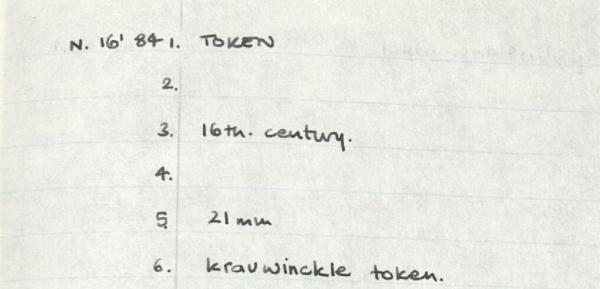 N. 16' 84 1. TOKEN
2.
3. 16th. century.
4.
5. 21 mm
6. krauwinckle token.